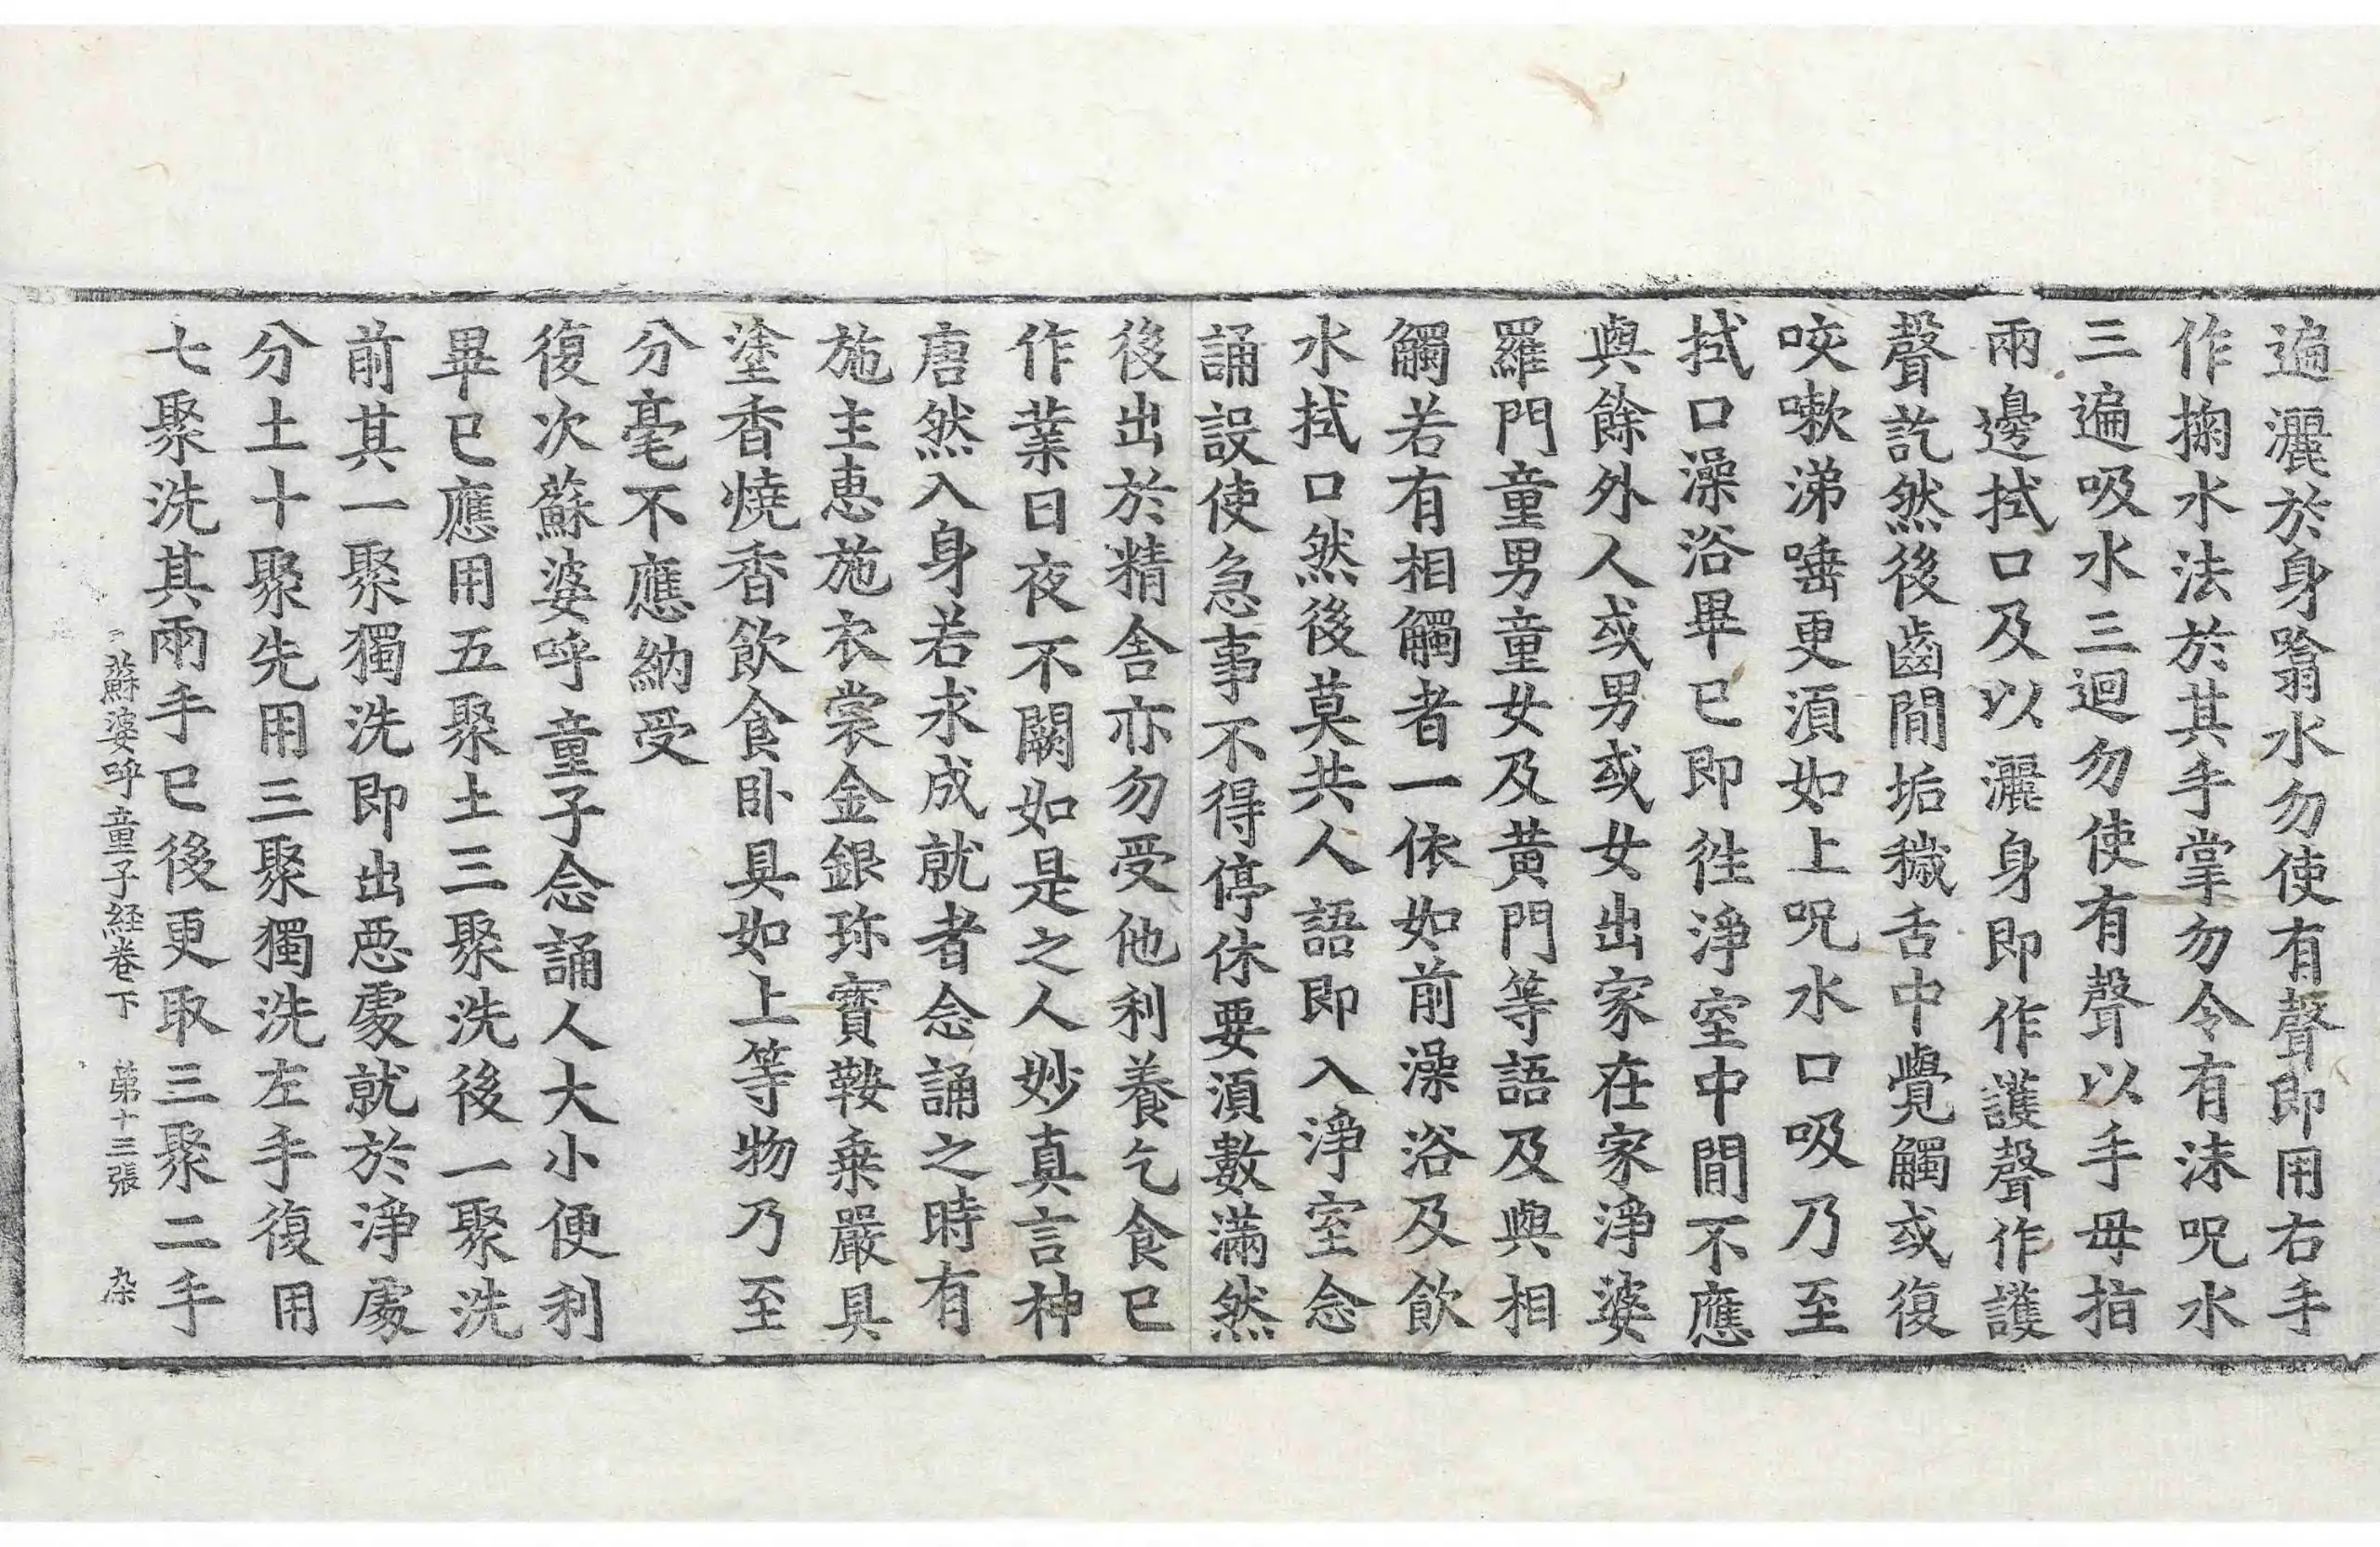 遍灑於身噏水勿使有聲即用右手
作掬水法於其手掌勿令有沫呪水
三遍吸水三迴勿使有聲以手母指
兩邊拭口及以灑身即作護聲作護
聲訖然後齒間垢穢舌中覺觸或復
咬嗽涕唾更湏如上呪水口吸乃至
拭口澡浴畢已即徃淨室中間不應
與餘外人或男或女出家在家淨婆
羅門童男童女及黄門等語及與相
觸若有相觸者一依如前澡浴及飲
水拭口然後莫共人語即入淨室念
誦設使急事不得停休要湏數滿然
後出於精舍亦勿受他利養乞食已
作業日夜不闕如是之人妙真言神
唐然入身若求成就者念誦之時有
施主恵施衣裳金銀珎寶鞍乗嚴具
塗香燒香飲食卧具如上等物乃至
分毫不應納受
復次蘇婆呼童子念誦人大小便利
畢已應用五聚土三聚洗後一聚洗
前其一聚獨洗即出惡處就於淨處
分土十聚先用三聚獨洗左手復用
七聚洗其兩手已後更取三聚二手
蘇婆呼童子経卷下　第十三張　杂